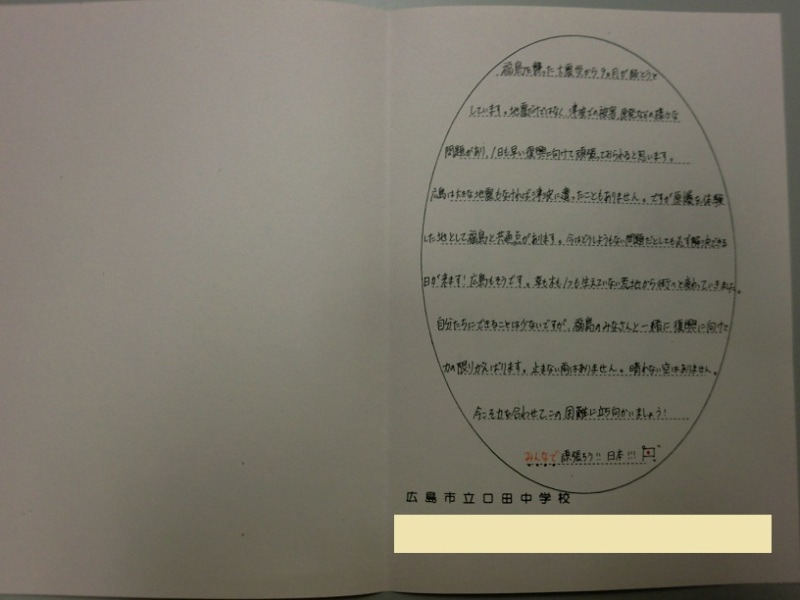 福島を襲った大震災から9ヵ月が経とうと
しています。地震だけではなく、津波での被害、原発などの様々な
問題があり、1日も早い復興に向けて頑張っておられると思います。
広島は大きな地震もなければ津波に遭ったこともありません。ですが原爆を体験
した地として福島と共通点があります。今はどうしようもない問題だとしても必ず解決できる
日が来ます!広島もそうです。草も木も1つも生えていない荒地から街へと変わっていきました。
自分たちにできることは少ないですが、福島のみなさんと一緒に復興に向けて
力の限りがんばります。止まない雨はありません。晴れない空はありません。
今こそ力を合わせて、この困難に立ち向かいましょう!
みんなで頑張ろう!!日本!!!
広島市立口田中学校